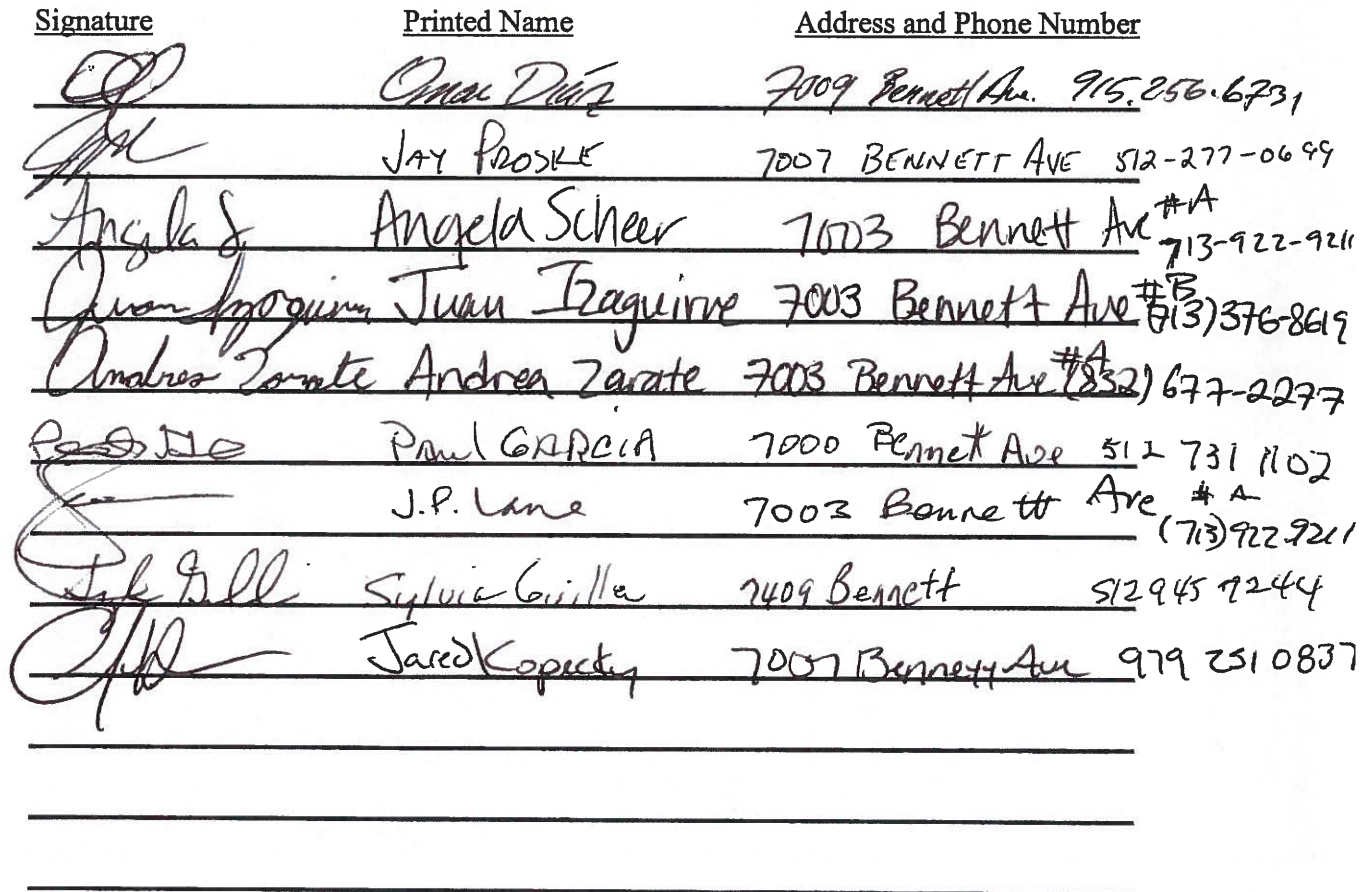 Signature Printed Name Address and Phone Number
Omar Díaz 7009 Bennett Ave. 915.256.6731
JAY PROSKE 7007 BENNETT AVE 512-277-0699
Angela S. Angela Scheer 7003 Bennett Ave #A 713-922-9211
Juan Izaguirre Juan Izaguirre 7003 Bennett Ave #B (713)376-8619
Andrea Zarate Andrea Zarate 7003 Bennett Ave #A (832) 677-2277
Paul GARCIA 7000 Bennett Ave 512 731 1102
J.P. Lane 7003 Bennett Ave # A (713)922.9211
Sylvia 7409 Bennett 512 945 7244
Jared Kopecky 7007 Bennett Ave 979 251 0837